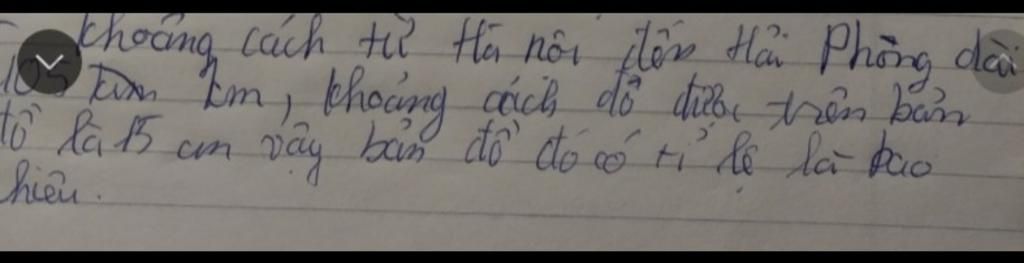 khoảng cách từ Hà nội đến Hải Phòng dài
105 km, khoảng cách đồ được trên bản
tồ là 15 cm vậy bản đồ đó có tỉ lệ là bao
hiêu.